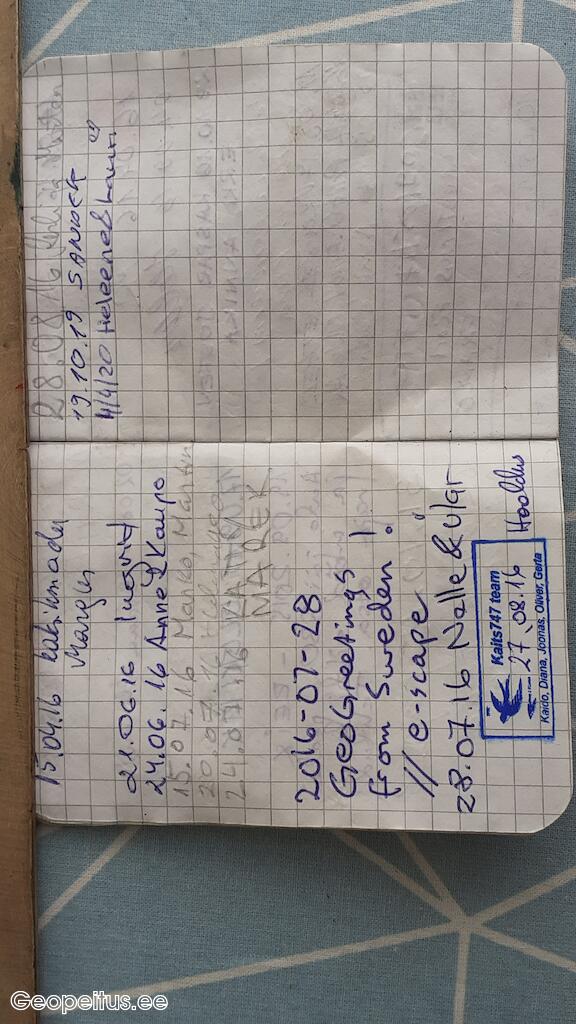 15.04.16
Margus
21.06.16 Ingrid
24.06.16 Anne & Kaupo
15.07.16 Marko, Martin
20.07.16
24.07.16
MAREK
2016-07-28
GeoGreetings
from Sweden!
// e-scape
28.07.16 Nelle & Ülar
Kaits747 team
27.08.16 Hooldus
Kaido, Diana, Joonas, Oliver, Gerta
28.08.16
19.10.19 SANDER
4/4/20 Heleene & Lauri
Geopeitus.ee